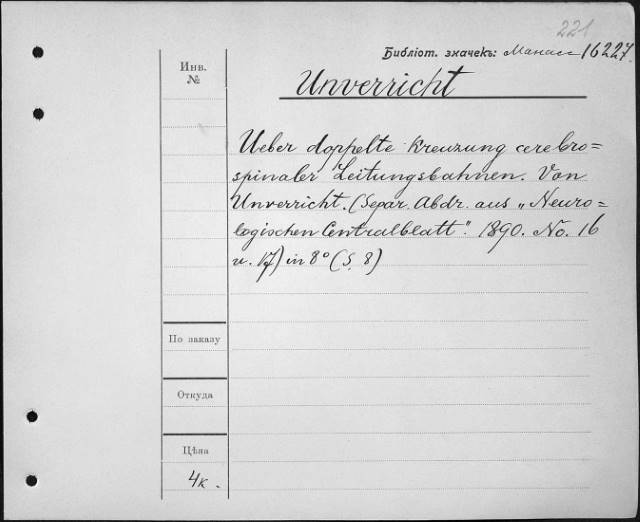 221
Библіот. значекъ: Манасс 16227.
Инв.
№
Unverricht
Ueber doppelte Kreuzung cerebro=
spinaler Leitungsbahnen. Von
Unverricht. (Separ. Abdr. aus „Neuro=
logischen Centralblatt". 1890. No. 16
u. 17) in 8° (S. 8)
По заказу
Откуда
Цѣна
4к.